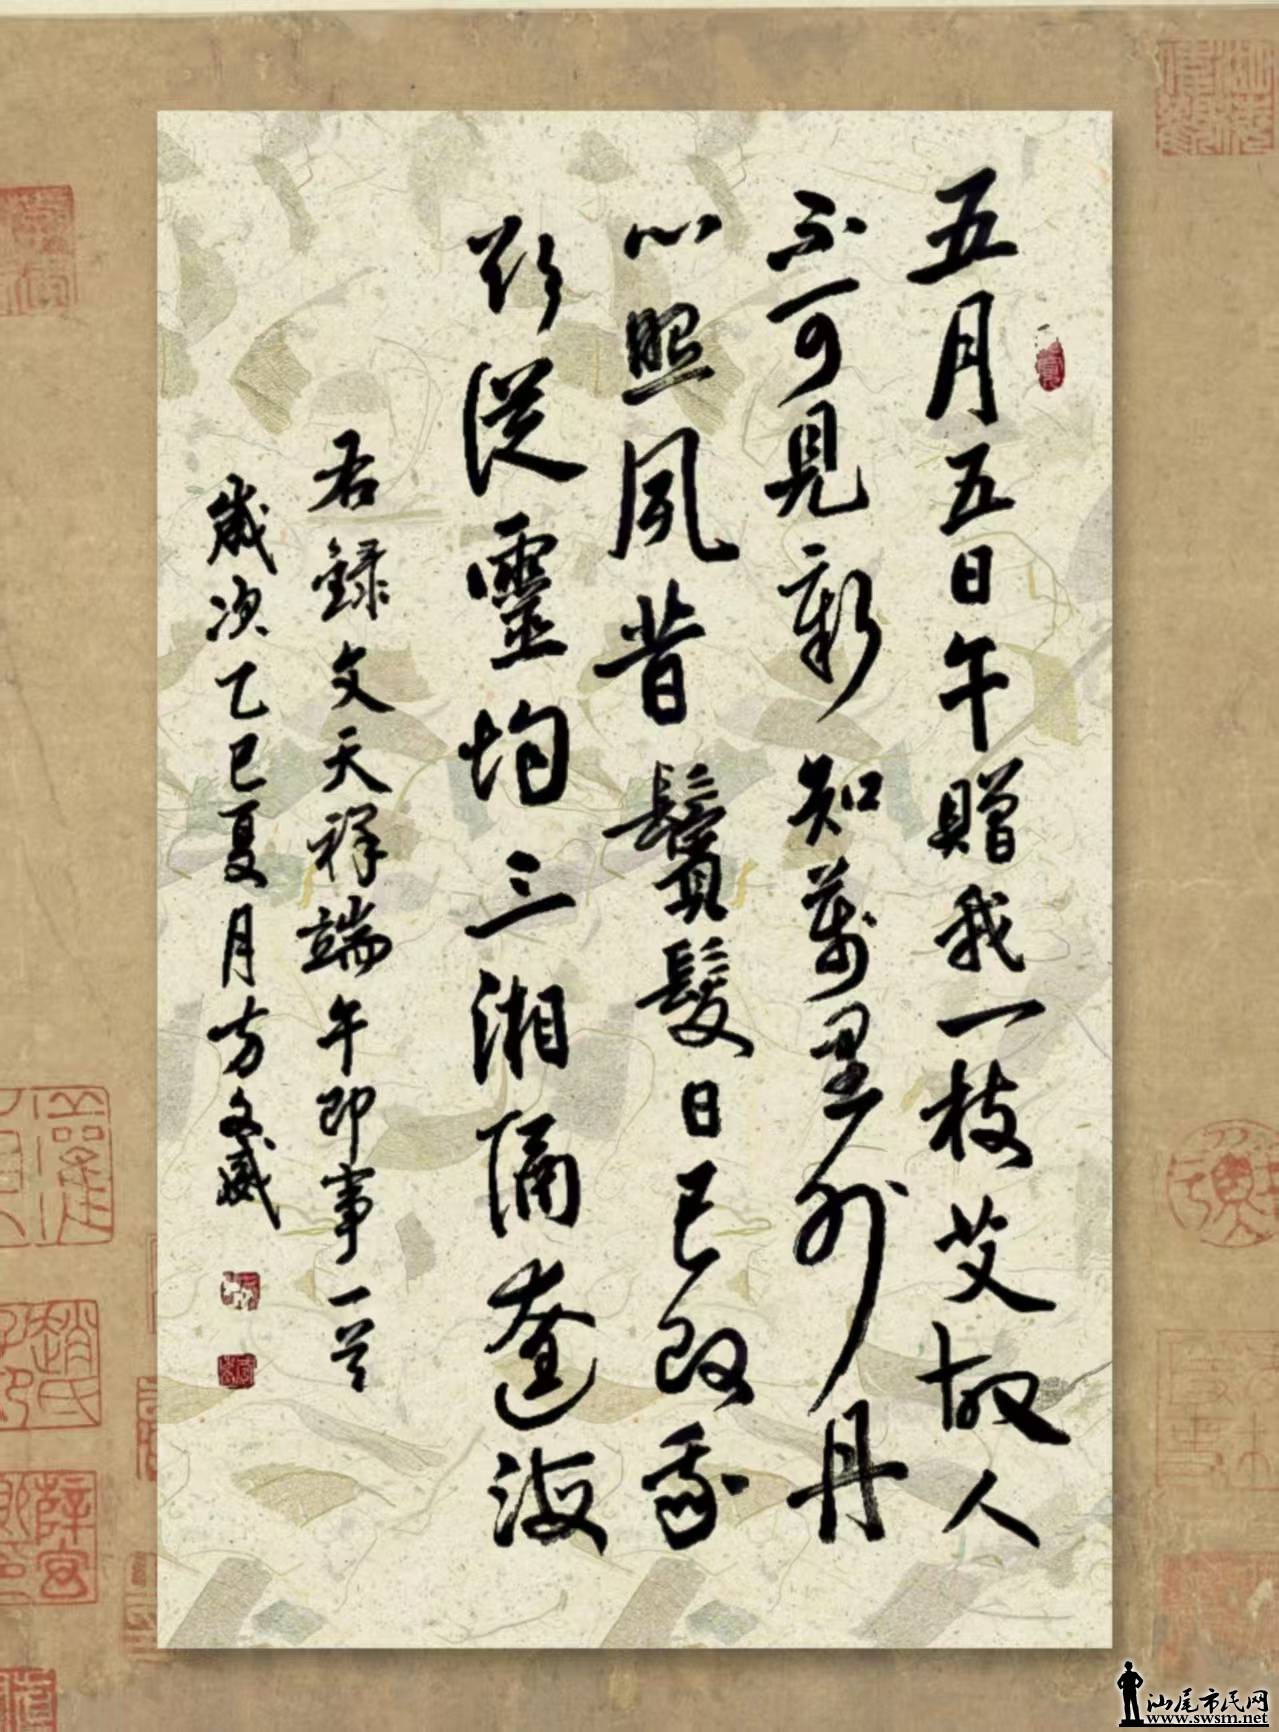 五月五日午贈我一枝艾故人
不可見新知萬里外丹
心照夙昔鬢髮日已改我
欲從靈均三湘隔遼海
右録文天祥端午即事一首
歲次乙巳夏月方文威
汕尾市民网
www.swsm.net